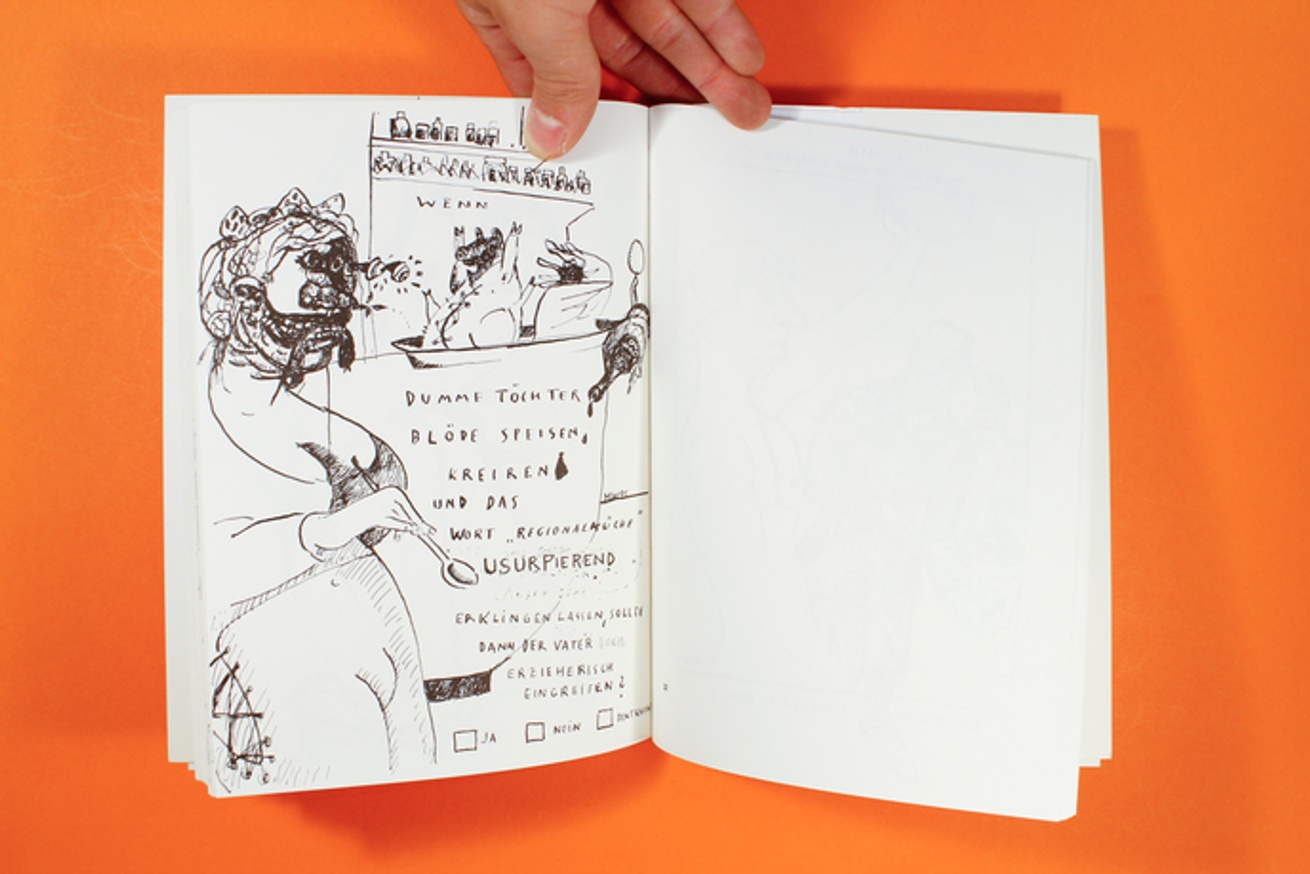 WENN
DUMME TÖCHTER
BLÖDE SPEISEN,
KREIREN
UND DAS
WORT „REGIONALKÜCHE"
USURPIEREND
ERKLINGEN LASSEN, SOLLTE
DANN DER VATER
ERZIEHERISCH
EINGREIFEN?
JA NEIN DON'T KNOW